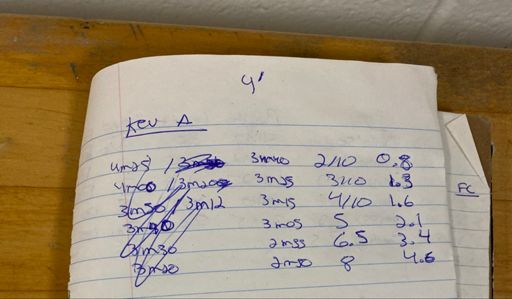 4'
Kev A
4m25 / 3m40 2/10 0.8
4m00 / 3m20 3m25 3/10 1.3
3m50 / 3m12 3m15 4/10 1.6
3m40 3m05 5 2.1
3m30 2m55 6.5 3.4
3m20 2m50 8 4.6
FC